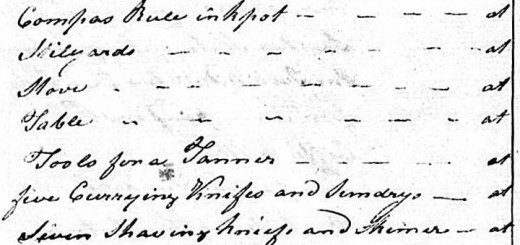 Compas Rule inkpot — — — — at
Stilyards — — — — — — at
Stove - - - - - - at
Table " " " " " at
Tools for a Tanner — — — — at
five Currying Knifes and Sundrys — at
Seven Shaving Kniefs and Skimer — at